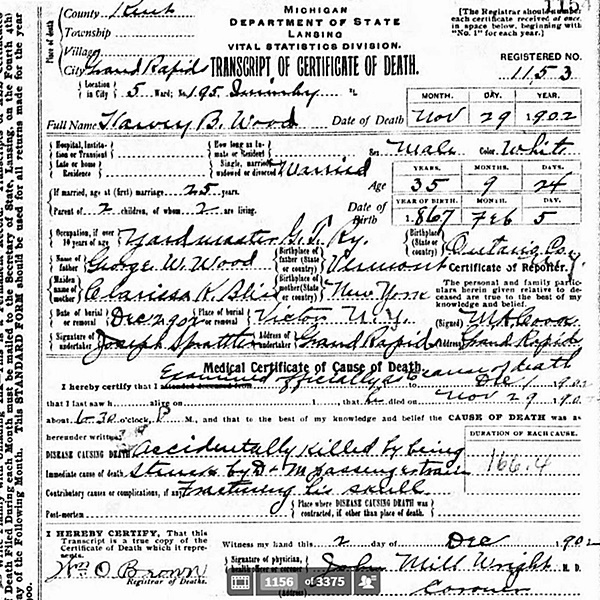 County Kent
Township
Village
City Grand Rapids
Place of death
MICHIGAN
DEPARTMENT OF STATE
LANSING
VITAL STATISTICS DIVISION.
TRANSCRIPT OF CERTIFICATE OF DEATH.
[The Registrar should number
each certificate received at once,
in space below, beginning with
"No. 1" for each year.]
REGISTERED NO.
1153
Location in City 5 Ward; No. 195 St.
Full Name Harvey B. Wood
Date of Death
MONTH. DAY. YEAR.
Nov 29 1902
Hospital, Institution or Transient
Late or home Residence
How long an Inmate or Resident
Single, married widowed or divorced Married
Sex Male Color White
Age
YEARS. MONTHS. DAYS.
35 9 24
If married, age at (first) marriage 25 years.
Parent of 2 children, of whom 2 are living.
Date of Birth
YEAR OF BIRTH. MONTH. DAY.
1867 Feb 5
Occupation, if over 10 years of age Yardmaster G.T. Ry.
Birthplace (State or country)
Name of father George W. Wood
Birthplace of father (State or country) Vermont
Maiden name of mother Clarissa K. Bliss
Birthplace of mother (State or country) New York
Certificate of Reporter.
The personal and family particulars herein given relative to deceased are true to the best of my knowledge and belief.
Date of burial or removal Dec 2 902 Place of burial or removal Victor N.Y.
(Signed)
Signature of undertaker Joseph Address of undertaker Grand Rapids Address Grand Rapids
Medical Certificate of Cause of Death.
Examined officially as to cause of death
I hereby certify that I attended deceased from to Dec 1 1902
that I last saw h alive on 1 , that he died on Nov 29 1902
about 6-30 o'clock, P M., and that to the best of my knowledge and belief the CAUSE OF DEATH was as
hereunder written:
DURATION OF EACH CAUSE.
DISEASE CAUSING DEATH Accidentally killed by being
166.4
Immediate cause of death, Struck by D & M passenger train
Contributory causes or complications, if any Fracturing his skull
Post-mortem
Place where DISEASE CAUSING DEATH was contracted, if other than place of death.
I HEREBY CERTIFY, That this
Transcript is a true copy of the
Certificate of Death which it represents.
Wm O. Brown
Registrar of Deaths.
Witness my hand this 2 day of Dec 1902
Signature of physician, health officer or coroner John Mill Wright M. D.
(Address) Coroner
1156 of 3375